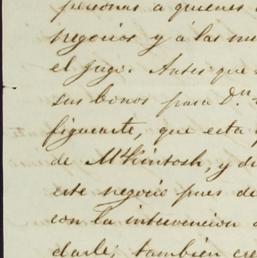 personas a quienes
negocios y á las
el pago. Antes que
sus bonos para D.n
figurarte, que esta
de McKintosh, y
este negocio pues de
con la intervencion
darle; tambien